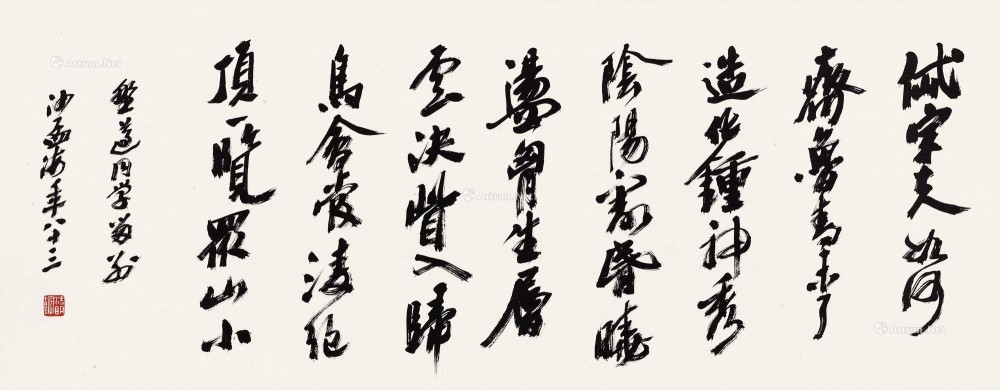 岱宗夫如何
齊魯青未了
造化鍾神秀
陰陽割昏曉
盪胷生層
雲決眥入歸
鳥會當凌絕
頂一覽眾山小
同學
沙孟海年八十三
Artron.Net
Artron.Net
Artron.Net